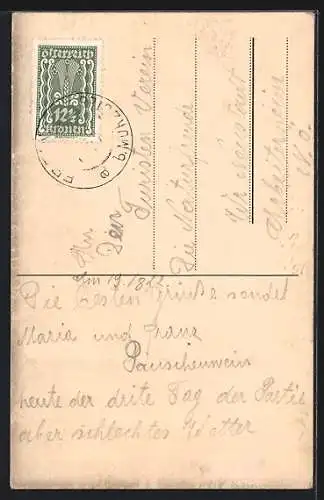 österreich
12½
kronen
An
Den
Turisten Verein
Die Naturfreunde
Wr Neustadt
N.Ö.
Am 19.1822
Die besten Grüße sendet
Maria und Franz
Pauschenwein
heute der drite Tag der Partie
aber schlechtes Wetter